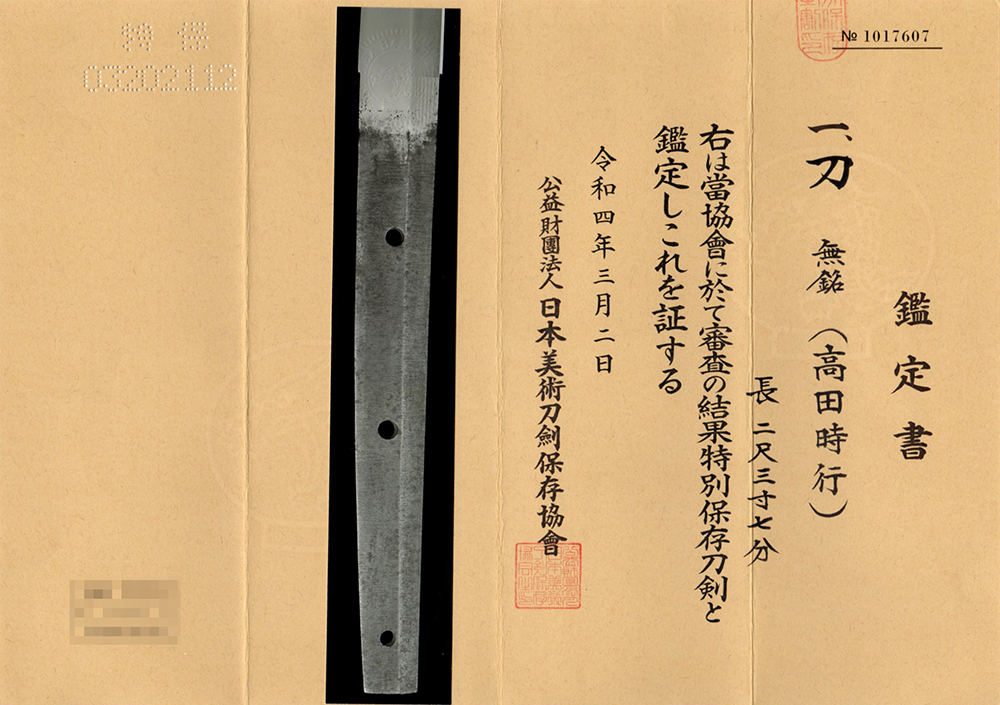 № 1017607
鑑定書
一、刀 無銘（高田時行）
長 二尺三寸七分
右は當協會に於て審査の結果特別保存刀剣と
鑑定しこれを証する
令和四年三月二日
公益財團法人 日本美術刀劍保存協會
特保
03202112